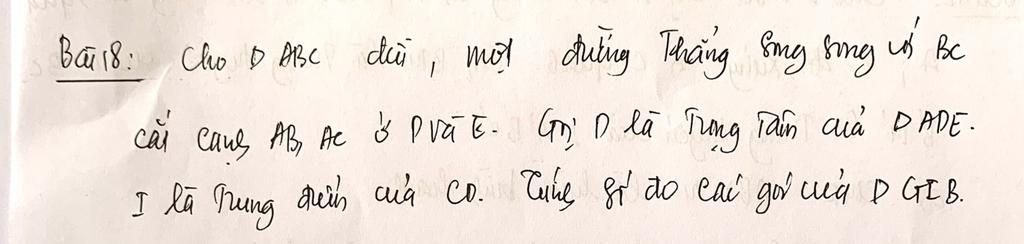 Bài 18: Cho Δ ABC đều, một đường thẳng song song với BC
cắt cạnh AB, AC ở D và E. Gọi D là trọng tâm của Δ ADE.
I là trung điểm của CD. Tính số đo các góc của Δ GIB.